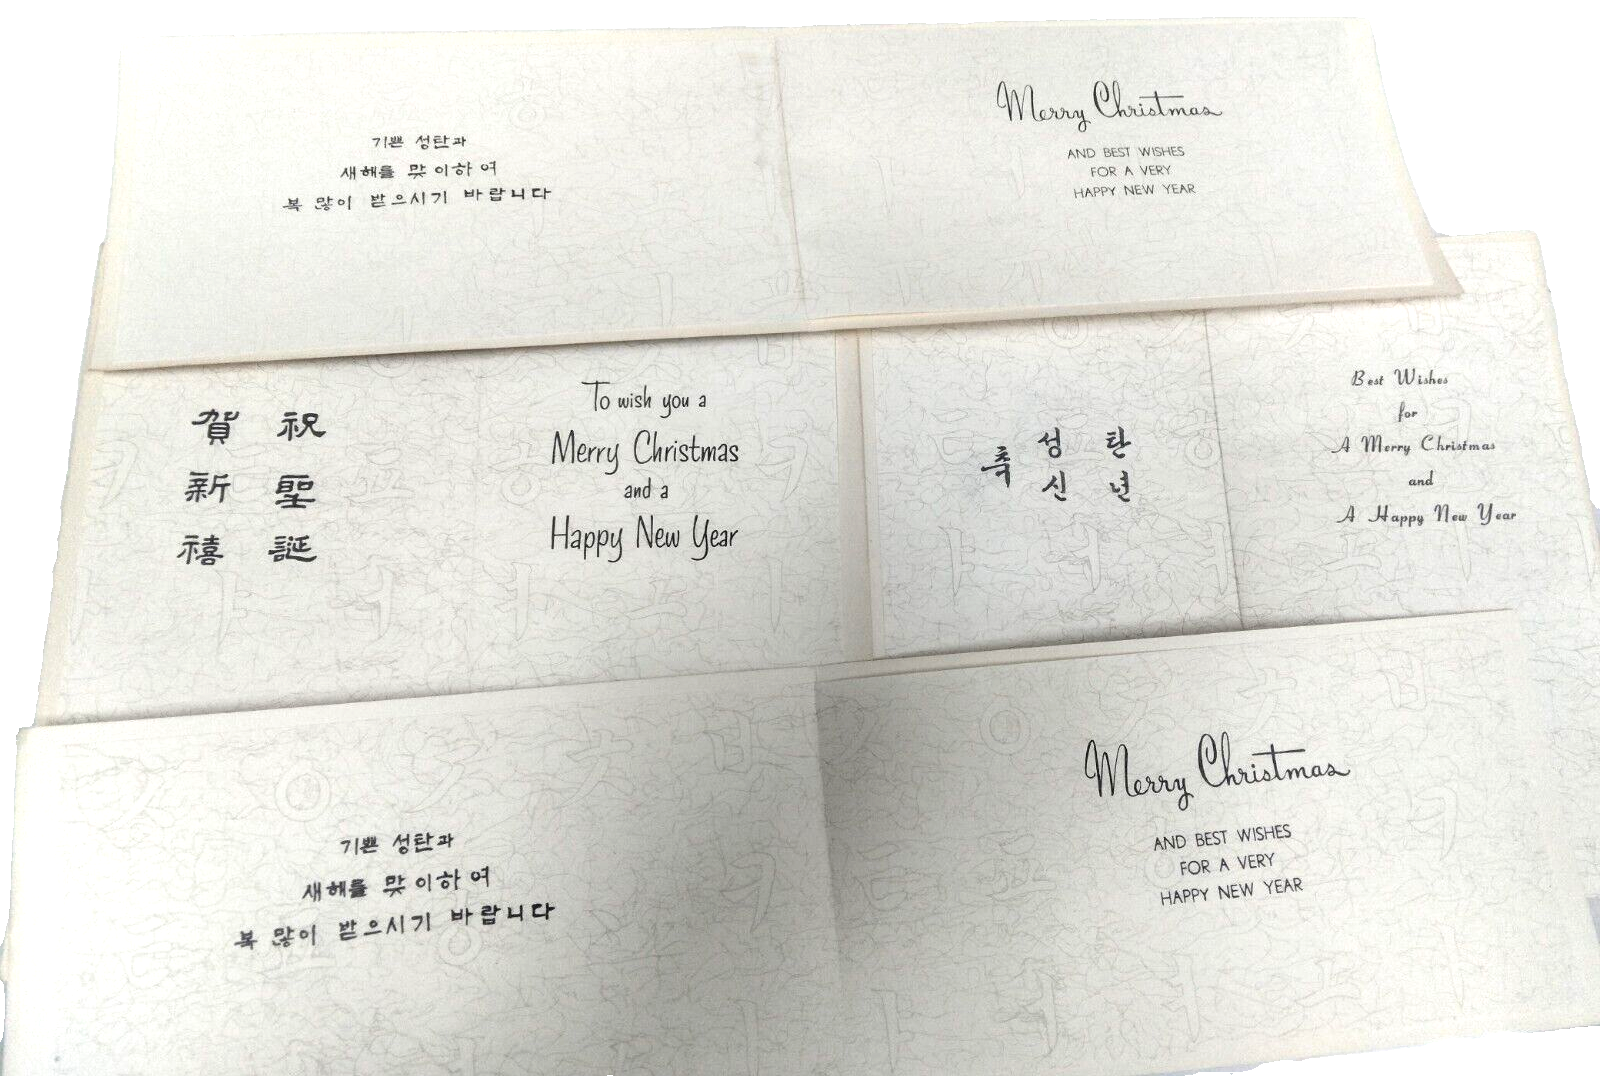 기쁜 성탄과
새해를 맞이하여
복 많이 받으시기 바랍니다
Merry Christmas
AND BEST WISHES
FOR A VERY
HAPPY NEW YEAR
祝聖誕
賀新禧
To wish you a
Merry Christmas
and a
Happy New Year
축 성탄
신년
Best Wishes
for
A Merry Christmas
and
A Happy New Year
기쁜 성탄과
새해를 맞이하여
복 많이 받으시기 바랍니다
Merry Christmas
AND BEST WISHES
FOR A VERY
HAPPY NEW YEAR